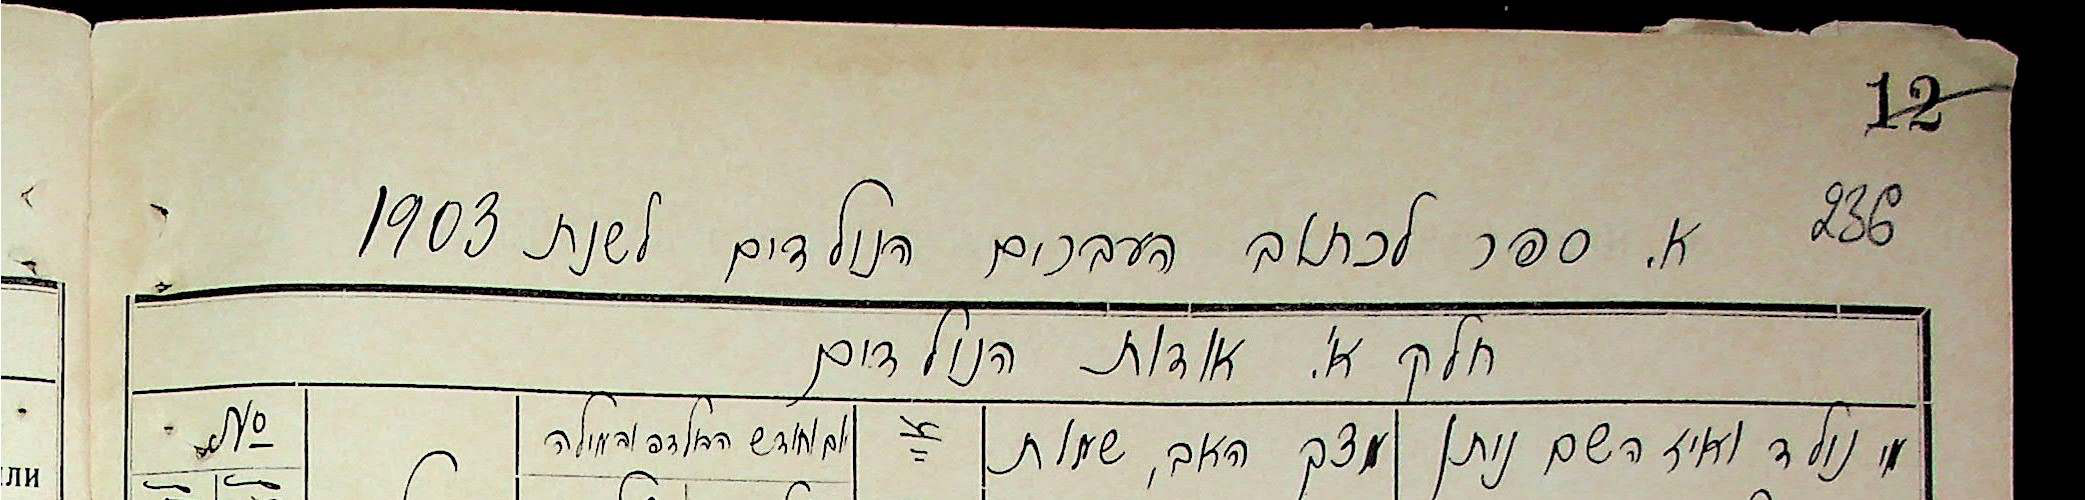 12
236
א. ספר לכתוב העברים הנולדים לשנת 1903
חלק א'. אודות הנולדים
מי נולד ואיזה השם ניתן
מצב האב, שמות
יום וחודש הולדם והמילה
№
ли